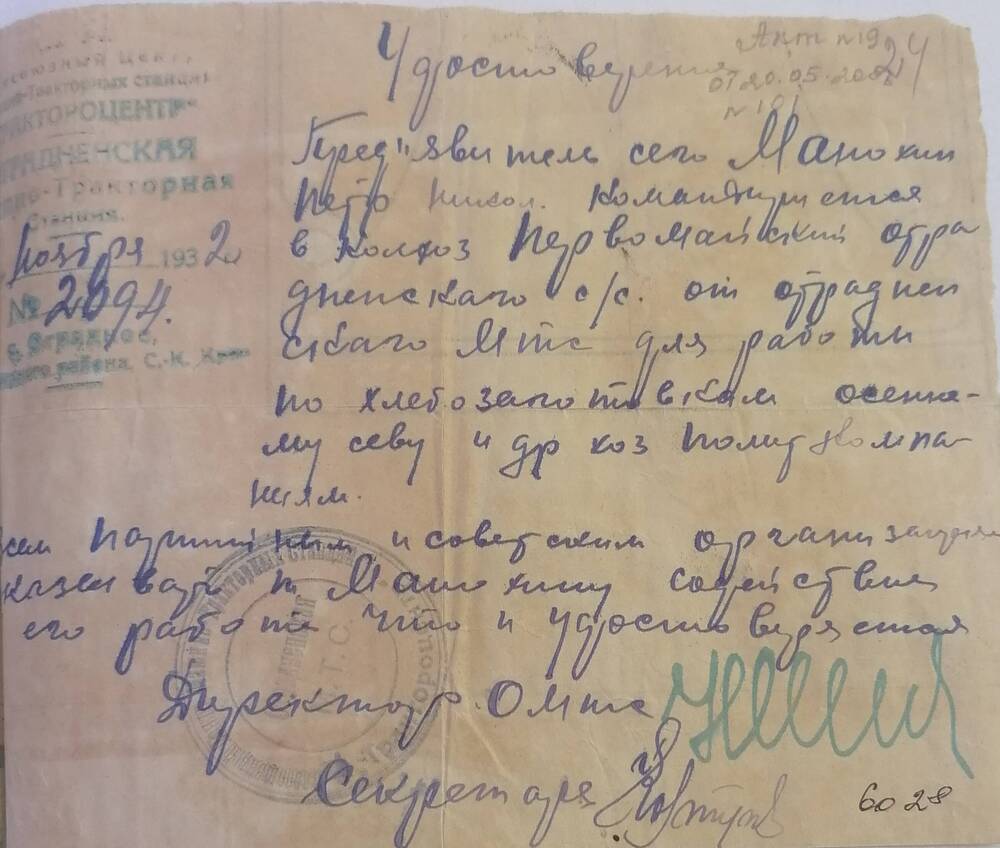 союзный Центр,
Тракторных станций
ТРАКТОРОЦЕНТР"
ТРАДНЕНСКАЯ
но-Тракторная
Станция.
ноября 1932
№ 2094.
с. Отрадное,
района, С.-К. Края
Удостоверение
Акт №19
24
от 20.05.2008
№101
Пред"явитель сего Манохин
Пётр Никол. Командируется
в Колхоз Первомайский отра
дненского с/с. от отраднен
ского Мтс для работи
по хлебозаготовкам осенне-
му севу и др хоз полит компа-
ниям.
сем Партийным и советским организациям
казивать т Манохину содействие
его работе Что и Удостоверяется
Директор Омтс
Секретарь
М.Т.С.
6028